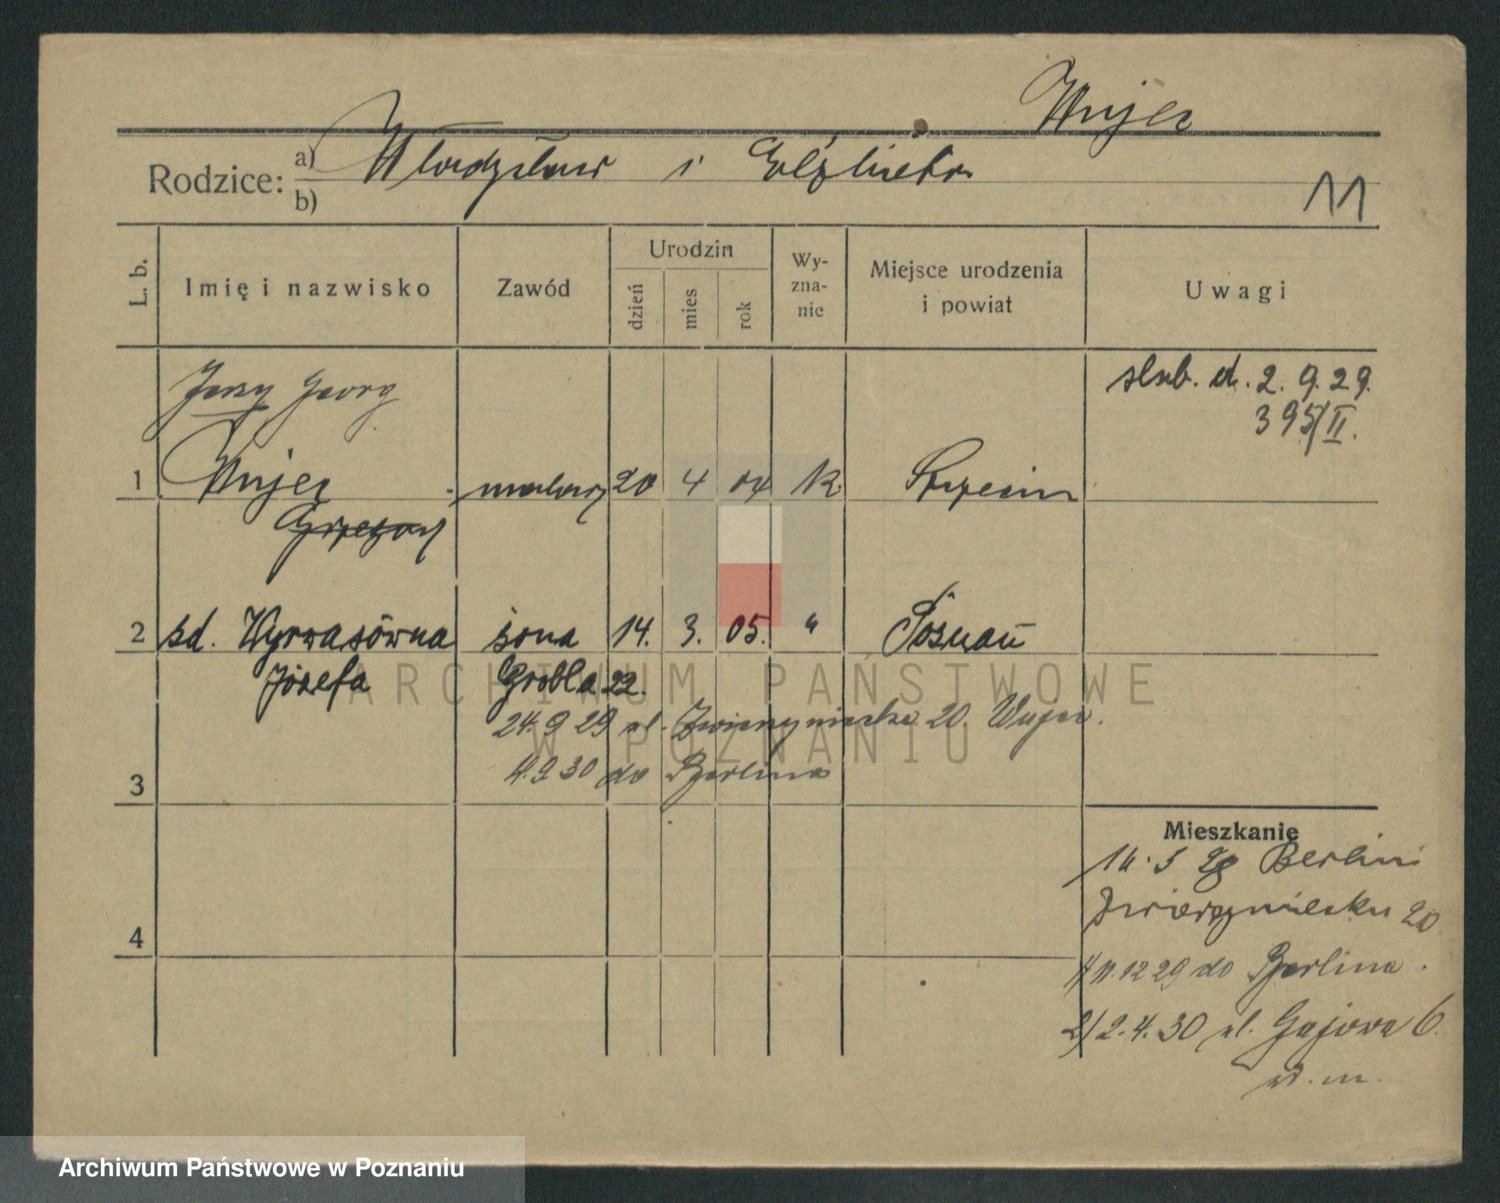 Wujec
Rodzice: a) Władysław i Elżbieta
b)
11
L. b.
Imię i nazwisko
Zawód
Urodzin
dzień
mies
rok
Wy-
zna-
nie
Miejsce urodzenia
i powiat
Uwagi
Jerzy Georg
ślub. d. 2. 9. 29.
395/II.
1 Wujec malarz 20 4 04 k.
Grzegorz
2 zd. Wyrwasówna żona 14. 3. 05. " Poznań
Józefa Grobla 22.
24. 9 29 ul. Zwierzyniecka 20. Wujec.
4. 9 30 do Berlina
3
Mieszkanie
14. 5 28 Berlin
Zwierzyniecka 20
4
1/ 11. 12 29 do Berlina.
2/ 2. 4. 30 ul. Gajowa 6.
ARCHIWUM PAŃSTWOWE
W POZNANIU
Archiwum Państwowe w Poznaniu